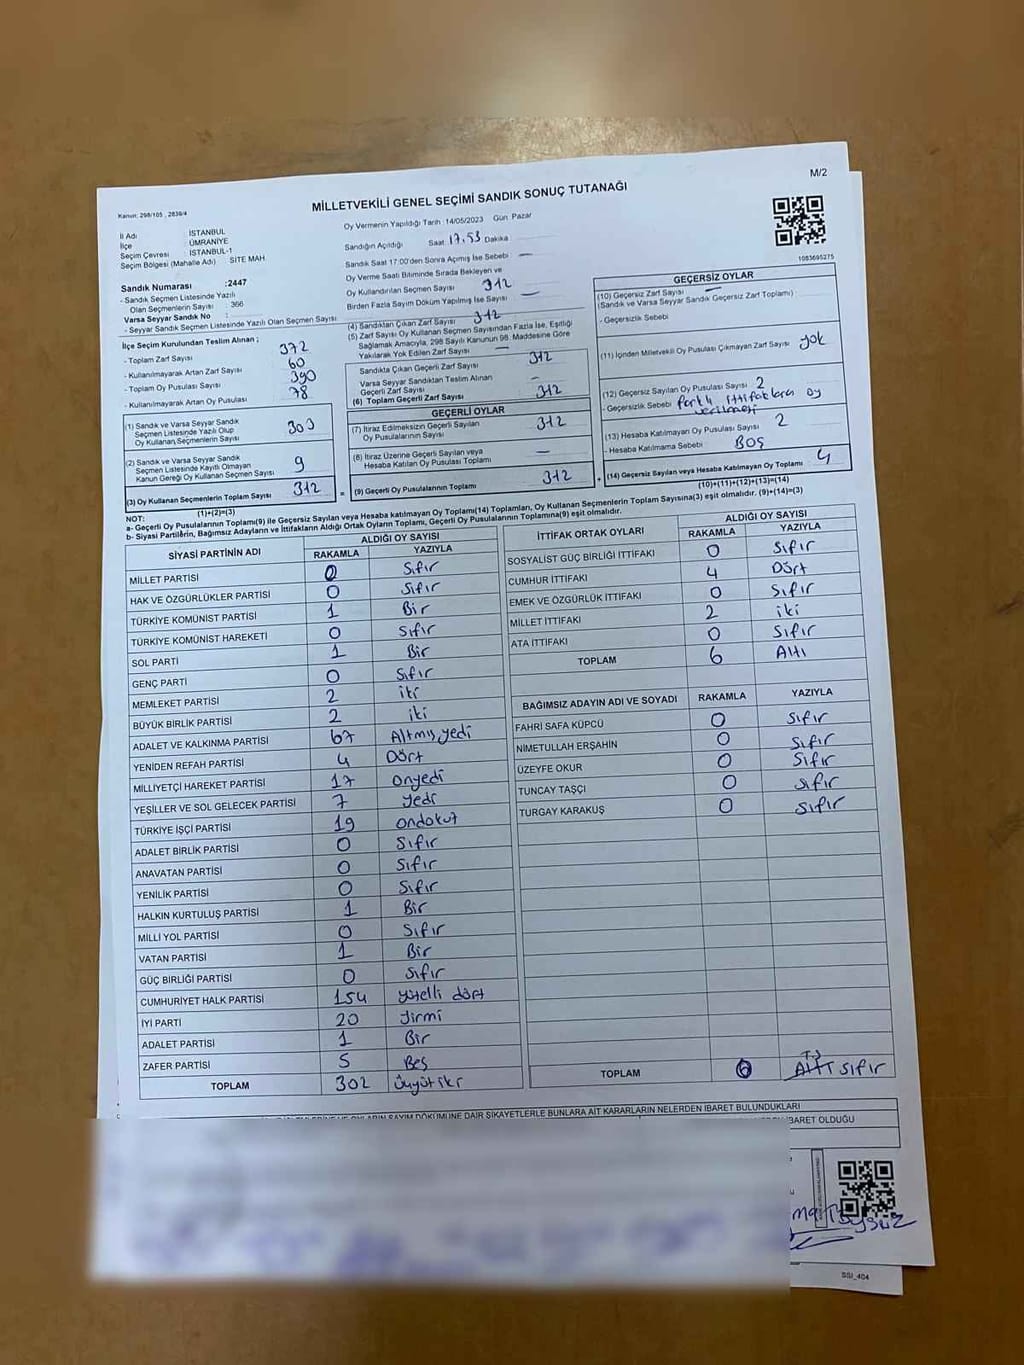 M/2
MİLLETVEKİLİ GENEL SEÇİMİ SANDIK SONUÇ TUTANAĞI
Kanun: 298/105 , 2839/4
İl Adı : İSTANBUL
İlçe : ÜMRANİYE
Seçim Çevresi : İSTANBUL-1
Seçim Bölgesi (Mahalle Adı) SİTE MAH.
Sandık Numarası :2447
- Sandık Seçmen Listesinde Yazılı
Olan Seçmenlerin Sayısı : 366
Varsa Seyyar Sandık No :
- Seyyar Sandık Seçmen Listesinde Yazılı Olan Seçmen Sayısı
Oy Vermenin Yapıldığı Tarih :14/05/2023 Gün Pazar
Sandığın Açıldığı Saat 17.53 Dakika
Sandık Saat 17:00'den Sonra Açımış İse Sebebi —
Oy Verme Saati Bitiminde Sırada Bekleyen ve
Oy Kullandırılan Seçmen Sayısı 312
Birden Fazla Sayım Döküm Yapılmış İse Sayısı —
1083695275
İlçe Seçim Kurulundan Teslim Alınan ;
- Toplam Zarf Sayısı 372
- Kullanılmayarak Artan Zarf Sayısı 60
- Toplam Oy Pusulası Sayısı 390
- Kullanılmayarak Artan Oy Pusulası 78
(1) Sandık ve Varsa Seyyar Sandık
Seçmen Listesinde Yazılı Olup
Oy Kullanan Seçmenlerin Sayısı 303
(2) Sandık ve Varsa Seyyar Sandık
Seçmen Listesinde Kayıtlı Olmayan
Kanun Gereği Oy Kullanan Seçmen Sayısı 9
(3) Oy Kullanan Seçmenlerin Toplam Sayısı 312
(1)+(2)=(3)
(4) Sandıktan Çıkan Zarf Sayısı 312
(5) Zarf Sayısı Oy Kullanan Seçmen Sayısından Fazla İse, Eşitliği
Sağlamak Amacıyla, 298 Sayılı Kanunun 98. Maddesine Göre
Yakılarak Yok Edilen Zarf Sayısı —
Sandıkta Çıkan Geçerli Zarf Sayısı 312
Varsa Seyyar Sandıktan Teslim Alınan
Geçerli Zarf Sayısı —
(6) Toplam Geçerli Zarf Sayısı 312
GEÇERLİ OYLAR
(7) İtiraz Edilmeksizin Geçerli Sayılan
Oy Pusulalarının Sayısı 312
(8) İtiraz Üzerine Geçerli Sayılan veya
Hesaba Katılan Oy Pusulası Toplamı —
= (9) Geçerli Oy Pusulalarının Toplamı 312
GEÇERSİZ OYLAR
(10) Geçersiz Zarf Sayısı —
(Sandık ve Varsa Seyyar Sandık Geçersiz Zarf Toplamı)
- Geçersizlik Sebebi
(11) İçinden Milletvekili Oy Pusulası Çıkmayan Zarf Sayısı yok
(12) Geçersiz Sayılan Oy Pusulası Sayısı 2
- Geçersizlik Sebebi farklı ittifaklara oy
verilmesi
(13) Hesaba Katılmayan Oy Pusulası Sayısı 2
- Hesaba Katılmama Sebebi BOŞ
+ (14) Geçersiz Sayılan veya Hesaba Katılmayan Oy Toplamı 4
(10)+(11)+(12)+(13)=(14)
NOT:
a- Geçerli Oy Pusulalarının Toplamı(9) ile Geçersiz Sayılan veya Hesaba katılmayan Oy Toplamı(14) Toplamları, Oy Kullanan Seçmenlerin Toplam Sayısına(3) eşit olmalıdır. (9)+(14)=(3)
b- Siyasi Partilerin, Bağımsız Adayların ve İttifakların Aldığı Ortak Oyların Toplamı, Geçerli Oy Pusulalarının Toplamına(9) eşit olmalıdır.
SİYASİ PARTİNİN ADI ALDIĞI OY SAYISI
RAKAMLA YAZIYLA
MİLLET PARTİSİ 0 Sıfır
HAK VE ÖZGÜRLÜKLER PARTİSİ 0 Sıfır
TÜRKİYE KOMÜNİST PARTİSİ 1 Bir
TÜRKİYE KOMÜNİST HAREKETİ 0 Sıfır
SOL PARTİ 1 Bir
GENÇ PARTİ 0 Sıfır
MEMLEKET PARTİSİ 2 iki
BÜYÜK BİRLİK PARTİSİ 2 iki
ADALET VE KALKINMA PARTİSİ 67 Altmış yedi
YENİDEN REFAH PARTİSİ 4 Dört
MİLLİYETÇİ HAREKET PARTİSİ 17 onyedi
YEŞİLLER VE SOL GELECEK PARTİSİ 7 yedi
TÜRKİYE İŞÇİ PARTİSİ 19 ondokuz
ADALET BİRLİK PARTİSİ 0 Sıfır
ANAVATAN PARTİSİ 0 Sıfır
YENİLİK PARTİSİ 0 Sıfır
HALKIN KURTULUŞ PARTİSİ 1 Bir
MİLLİ YOL PARTİSİ 0 Sıfır
VATAN PARTİSİ 1 Bir
GÜÇ BİRLİĞİ PARTİSİ 0 Sıfır
CUMHURİYET HALK PARTİSİ 154 yüzelli dört
İYİ PARTİ 20 yirmi
ADALET PARTİSİ 1 Bir
ZAFER PARTİSİ 5 Beş
TOPLAM 302 üçyüz iki
İTTİFAK ORTAK OYLARI ALDIĞI OY SAYISI
RAKAMLA YAZIYLA
SOSYALİST GÜÇ BİRLİĞİ İTTİFAKI 0 Sıfır
CUMHUR İTTİFAKI 4 Dört
EMEK VE ÖZGÜRLÜK İTTİFAKI 0 Sıfır
MİLLET İTTİFAKI 2 iki
ATA İTTİFAKI 0 Sıfır
TOPLAM 6 Altı
BAĞIMSIZ ADAYIN ADI VE SOYADI RAKAMLA YAZIYLA
FAHRİ SAFA KÜPCÜ 0 Sıfır
NİMETULLAH ERŞAHİN 0 Sıfır
ÜZEYFE OKUR 0 Sıfır
TUNCAY TAŞÇI 0 Sıfır
TURGAY KARAKUŞ 0 Sıfır
TOPLAM 0 sıfır
SAYIM DÖKÜMÜNE DAİR ŞİKAYETLERLE BUNLARA AİT KARARLARIN NELERDEN İBARET BULUNDUKLARI
İBARET OLDUĞU
SSI_404